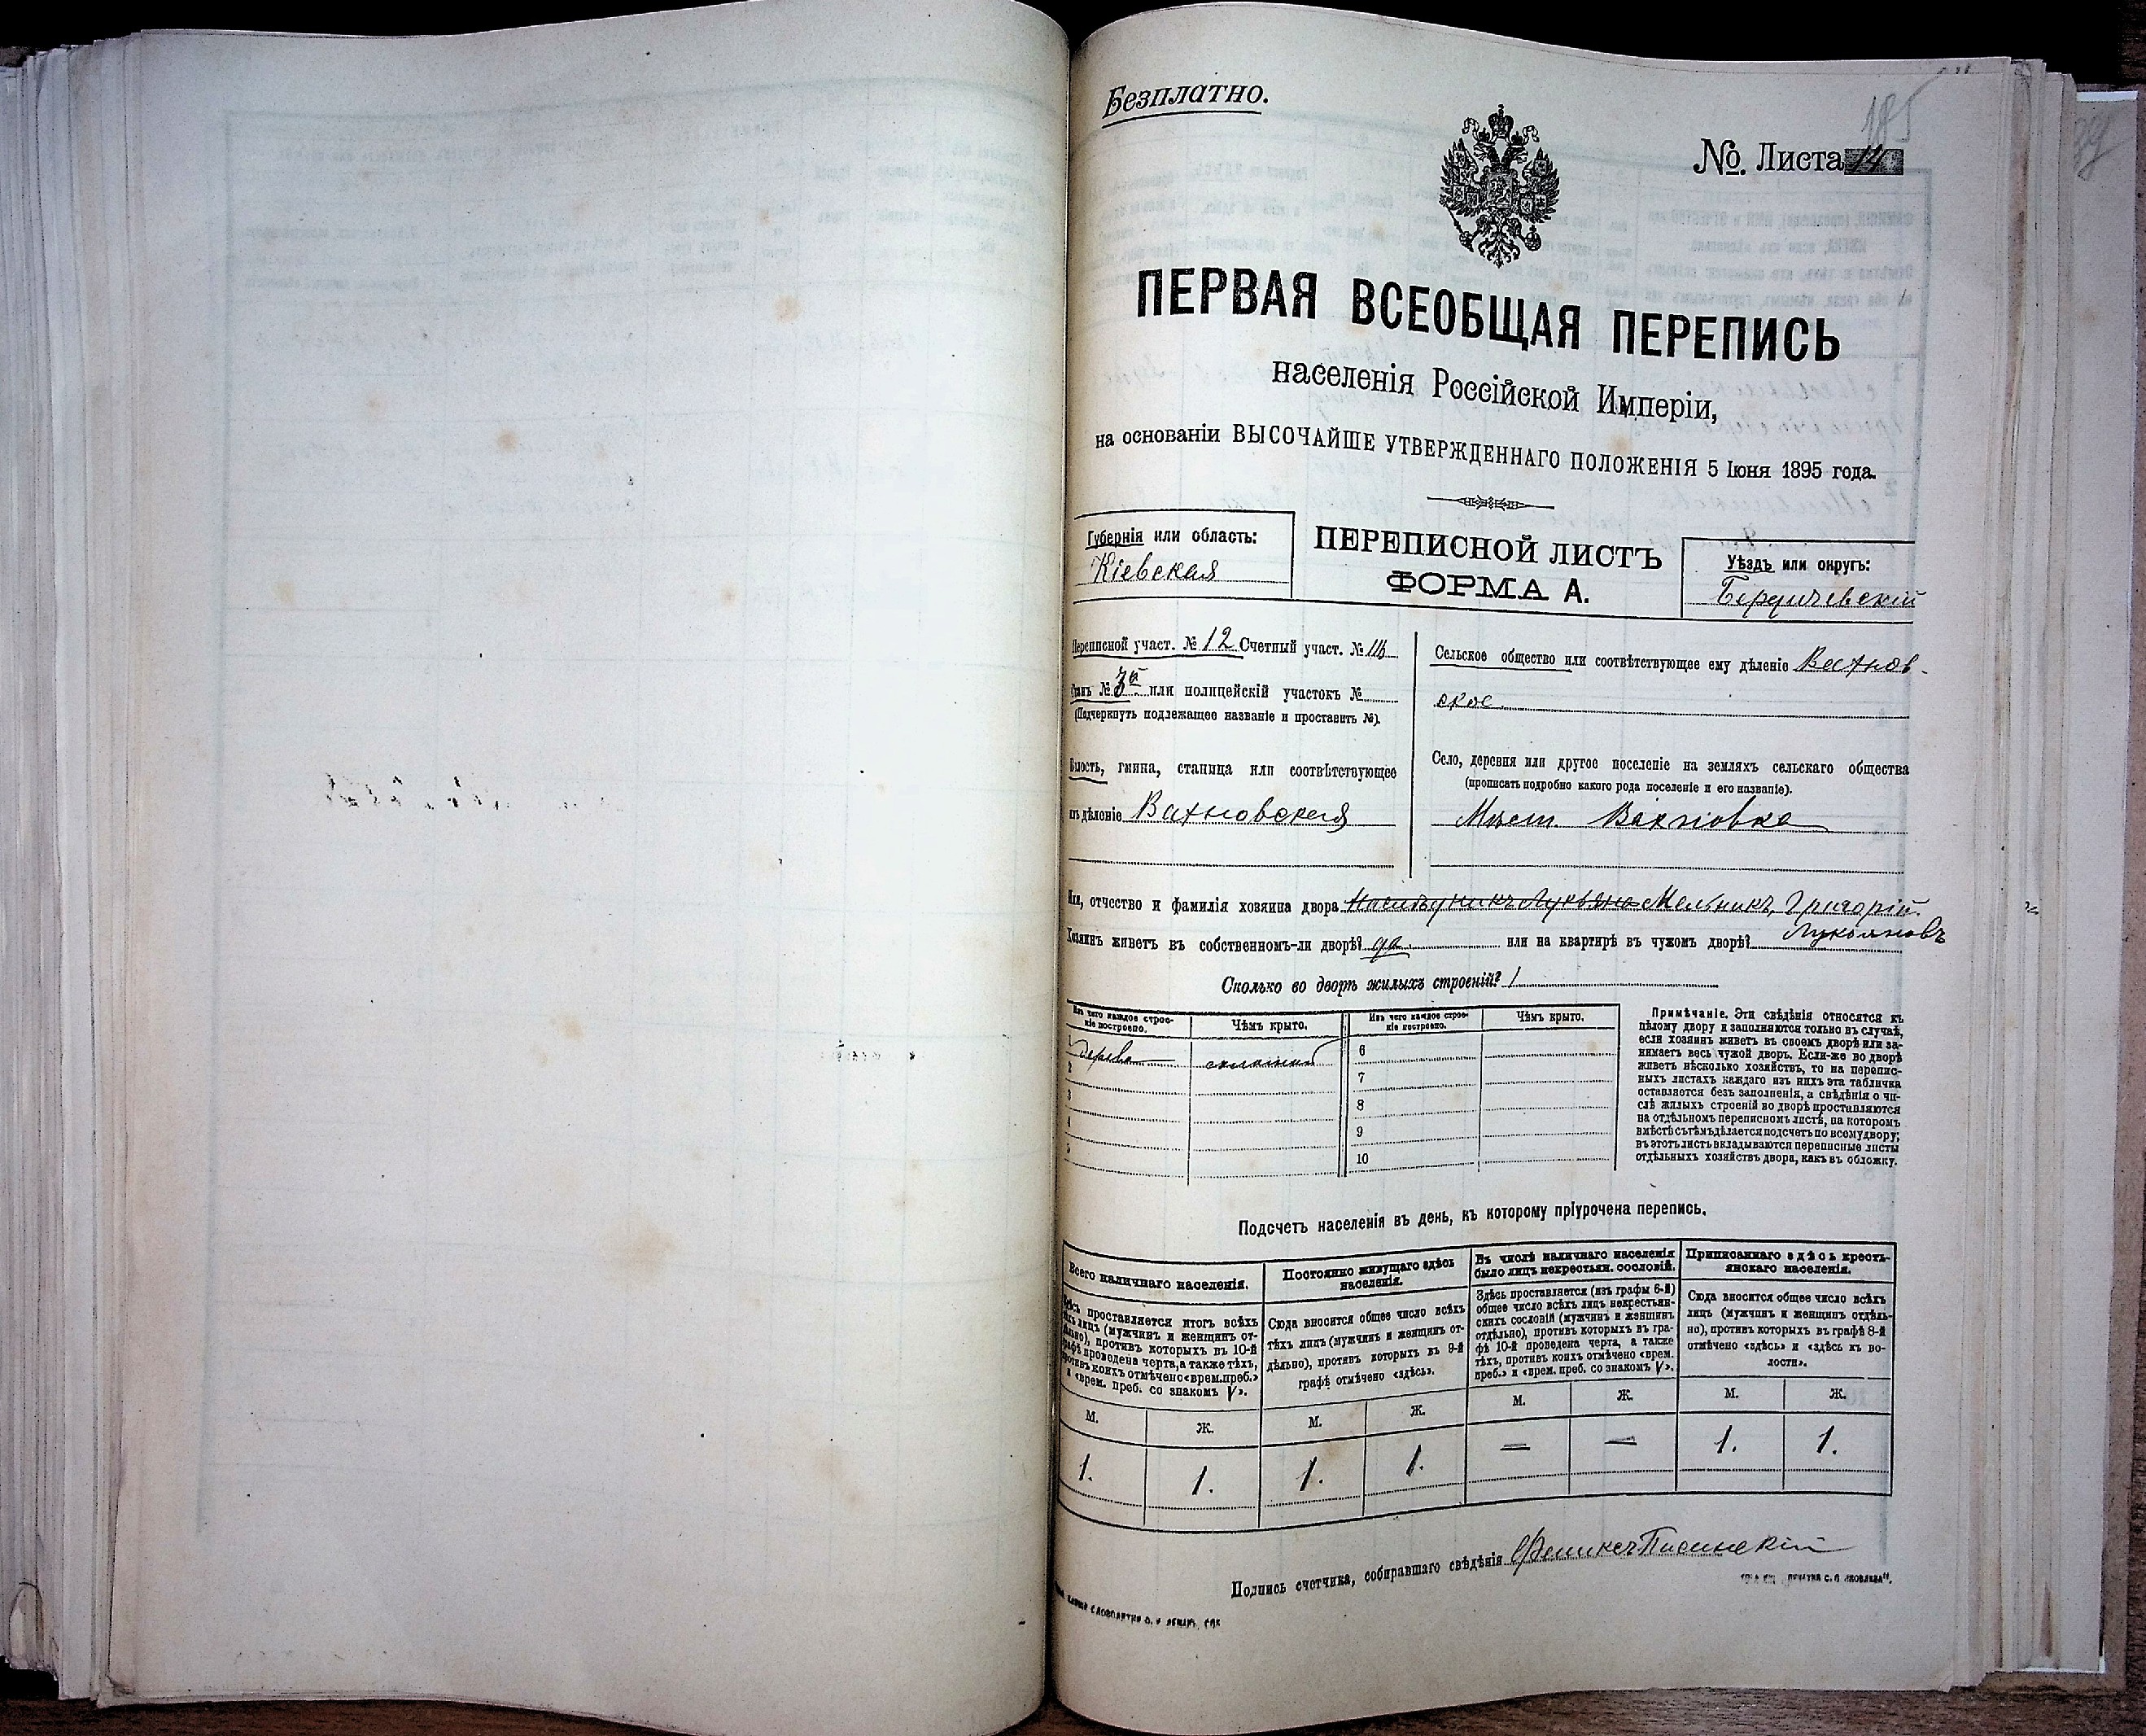 Безплатно.
185
№. Листа 14
ПЕРВАЯ ВСЕОБЩАЯ ПЕРЕПИСЬ
населенія Россійской Имперіи,
на основаніи ВЫСОЧАЙШЕ УТВЕРЖДЕННАГО ПОЛОЖЕНІЯ 5 Іюня 1895 года.
Губернія или область:
Кіевская
ПЕРЕПИСНОЙ ЛИСТЪ
ФОРМА А.
Уѣздъ или округъ:
Бердичевскій
Переписной участ. № 12 Счетный участ. №
Станъ № 3й или полицейскій участокъ №
(Подчеркнуть подлежащее названіе и проставить №).
Волость, гмина, станица или соотвѣтствующее
имъ дѣленіе Вахновская
Сельское общество или соотвѣтствующее ему дѣленіе Вахнов-
ское
Село, деревня или другое поселеніе на земляхъ сельскаго общества
(прописать подробно какого рода поселеніе и его названіе).
Мѣст. Вахновка
Имя, отчество и фамилія хозяина двора Мельникъ, Григорій
Лукьяновъ
Хозяинъ живетъ въ собственномъ-ли дворѣ? да или на квартирѣ въ чужомъ дворѣ?
Сколько во дворѣ жилыхъ строеній? 1
Изъ чего каждое строе-
ніе построено.
Чѣмъ крыто.
Изъ чего каждое строе-
ніе построено.
Чѣмъ крыто.
1 дерева соломой
2
3
4
5
6
7
8
9
10
Примѣчаніе. Эти свѣдѣнія относятся къ
цѣлому двору и заполняются только въ случаѣ,
если хозяинъ живетъ въ своемъ дворѣ или за-
нимаетъ весь чужой дворъ. Если-же во дворѣ
живетъ нѣсколько хозяйствъ, то на перепис-
ныхъ листахъ каждаго изъ нихъ эта табличка
оставляется безъ заполненія, а свѣдѣнія о чи-
слѣ жилыхъ строеній во дворѣ проставляются
на отдѣльномъ переписномъ листѣ, на которомъ
вмѣстѣ съ тѣмъ дѣлается подсчетъ по всему двору;
въ этотъ листъ вкладываются переписные листы
отдѣльныхъ хозяйствъ двора, какъ въ обложку.
Подсчетъ населенія въ день, къ которому пріурочена перепись.
Всего наличнаго населенія.
Здѣсь проставляется итогъ всѣхъ
тѣхъ лицъ (мужчинъ и женщинъ от-
дѣльно), противъ которыхъ въ 10-й
графѣ проведена черта, а также тѣхъ,
противъ коихъ отмѣчено «врем. преб.»
и «врем. преб. со знакомъ V».
Постоянно живущаго здѣсь
населенія.
Сюда вносится общее число всѣхъ
тѣхъ лицъ (мужчинъ и женщинъ от-
дѣльно), противъ которыхъ въ 9-й
графѣ отмѣчено «здѣсь».
Въ числѣ наличнаго населенія
было лицъ некрестьян. сословій.
Здѣсь проставляется (изъ графы 6-й)
общее число всѣхъ лицъ некрестьян-
скихъ сословій (мужчинъ и женщинъ
отдѣльно), противъ которыхъ въ гра-
фѣ 10-й проведена черта, а также
тѣхъ, противъ коихъ отмѣчено «врем.
преб.» и «врем. преб. со знакомъ V».
Приписаннаго здѣсь кресть-
янскаго населенія.
Сюда вносится общее число всѣхъ
лицъ (мужчинъ и женщинъ отдѣль-
но), противъ которыхъ въ графѣ 8-й
отмѣчено «здѣсь» и «здѣсь къ во-
лости».
М. Ж. М. Ж. М. Ж. М. Ж.
1. 1. 1. 1. — — 1. 1.
Подпись счетчика, собиравшаго свѣдѣнія Феликсъ